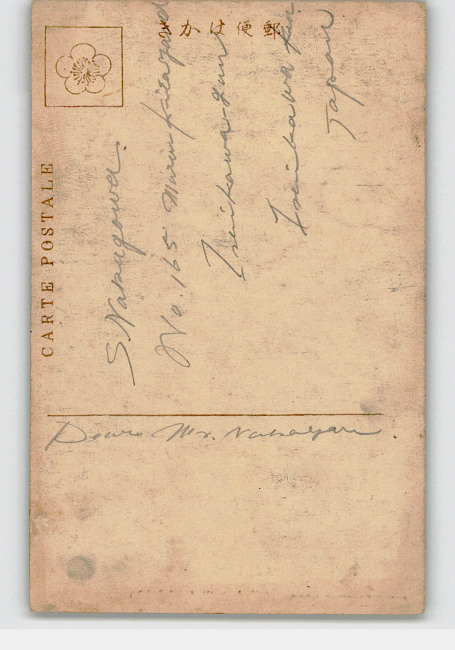 郵便はかき
CARTE POSTALE
S. Nakagawa.
No. 165
Ishikawa gun
Ishikawa Ken
Japan
Dear Mr. Nakagawa